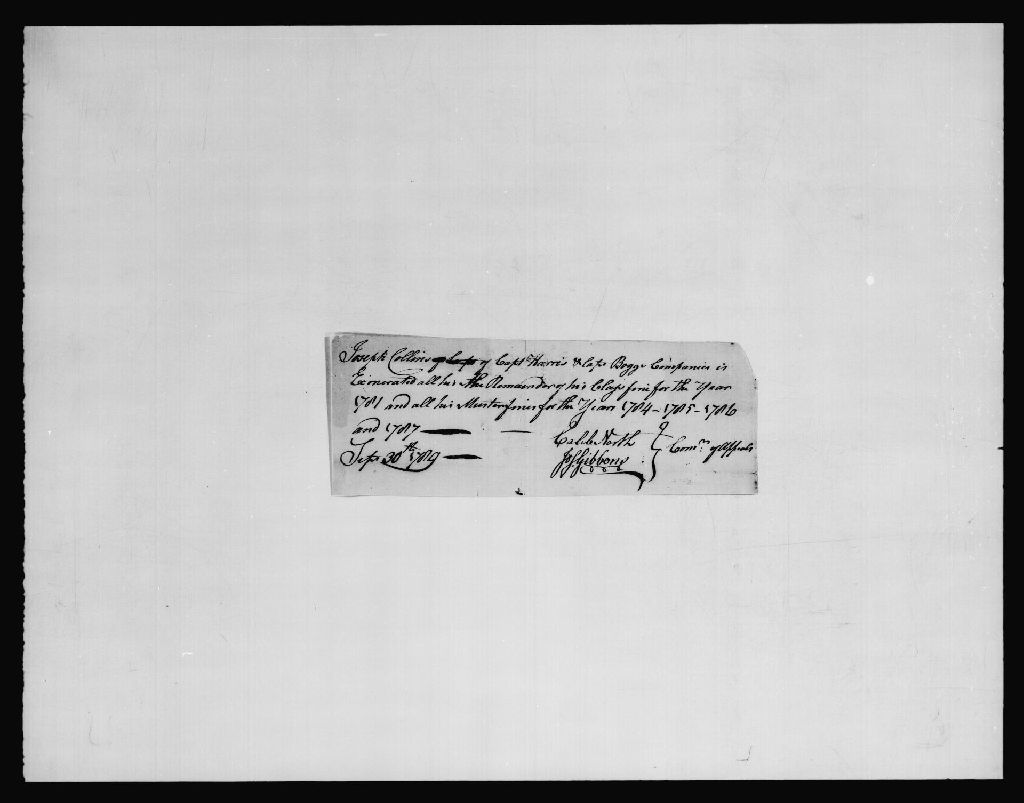 Joseph Collins of Capt. Harris & Capt Boggs Companies is
Exonerated all his the Remainder of his Class fine for the Year
1781 and all his Muster fines for the Years 1784 - 1785 - 1786
and 1787 — —
Caleb North
Jos Gibbons
Comrs. of Appeals
Sept 30th 1789 —